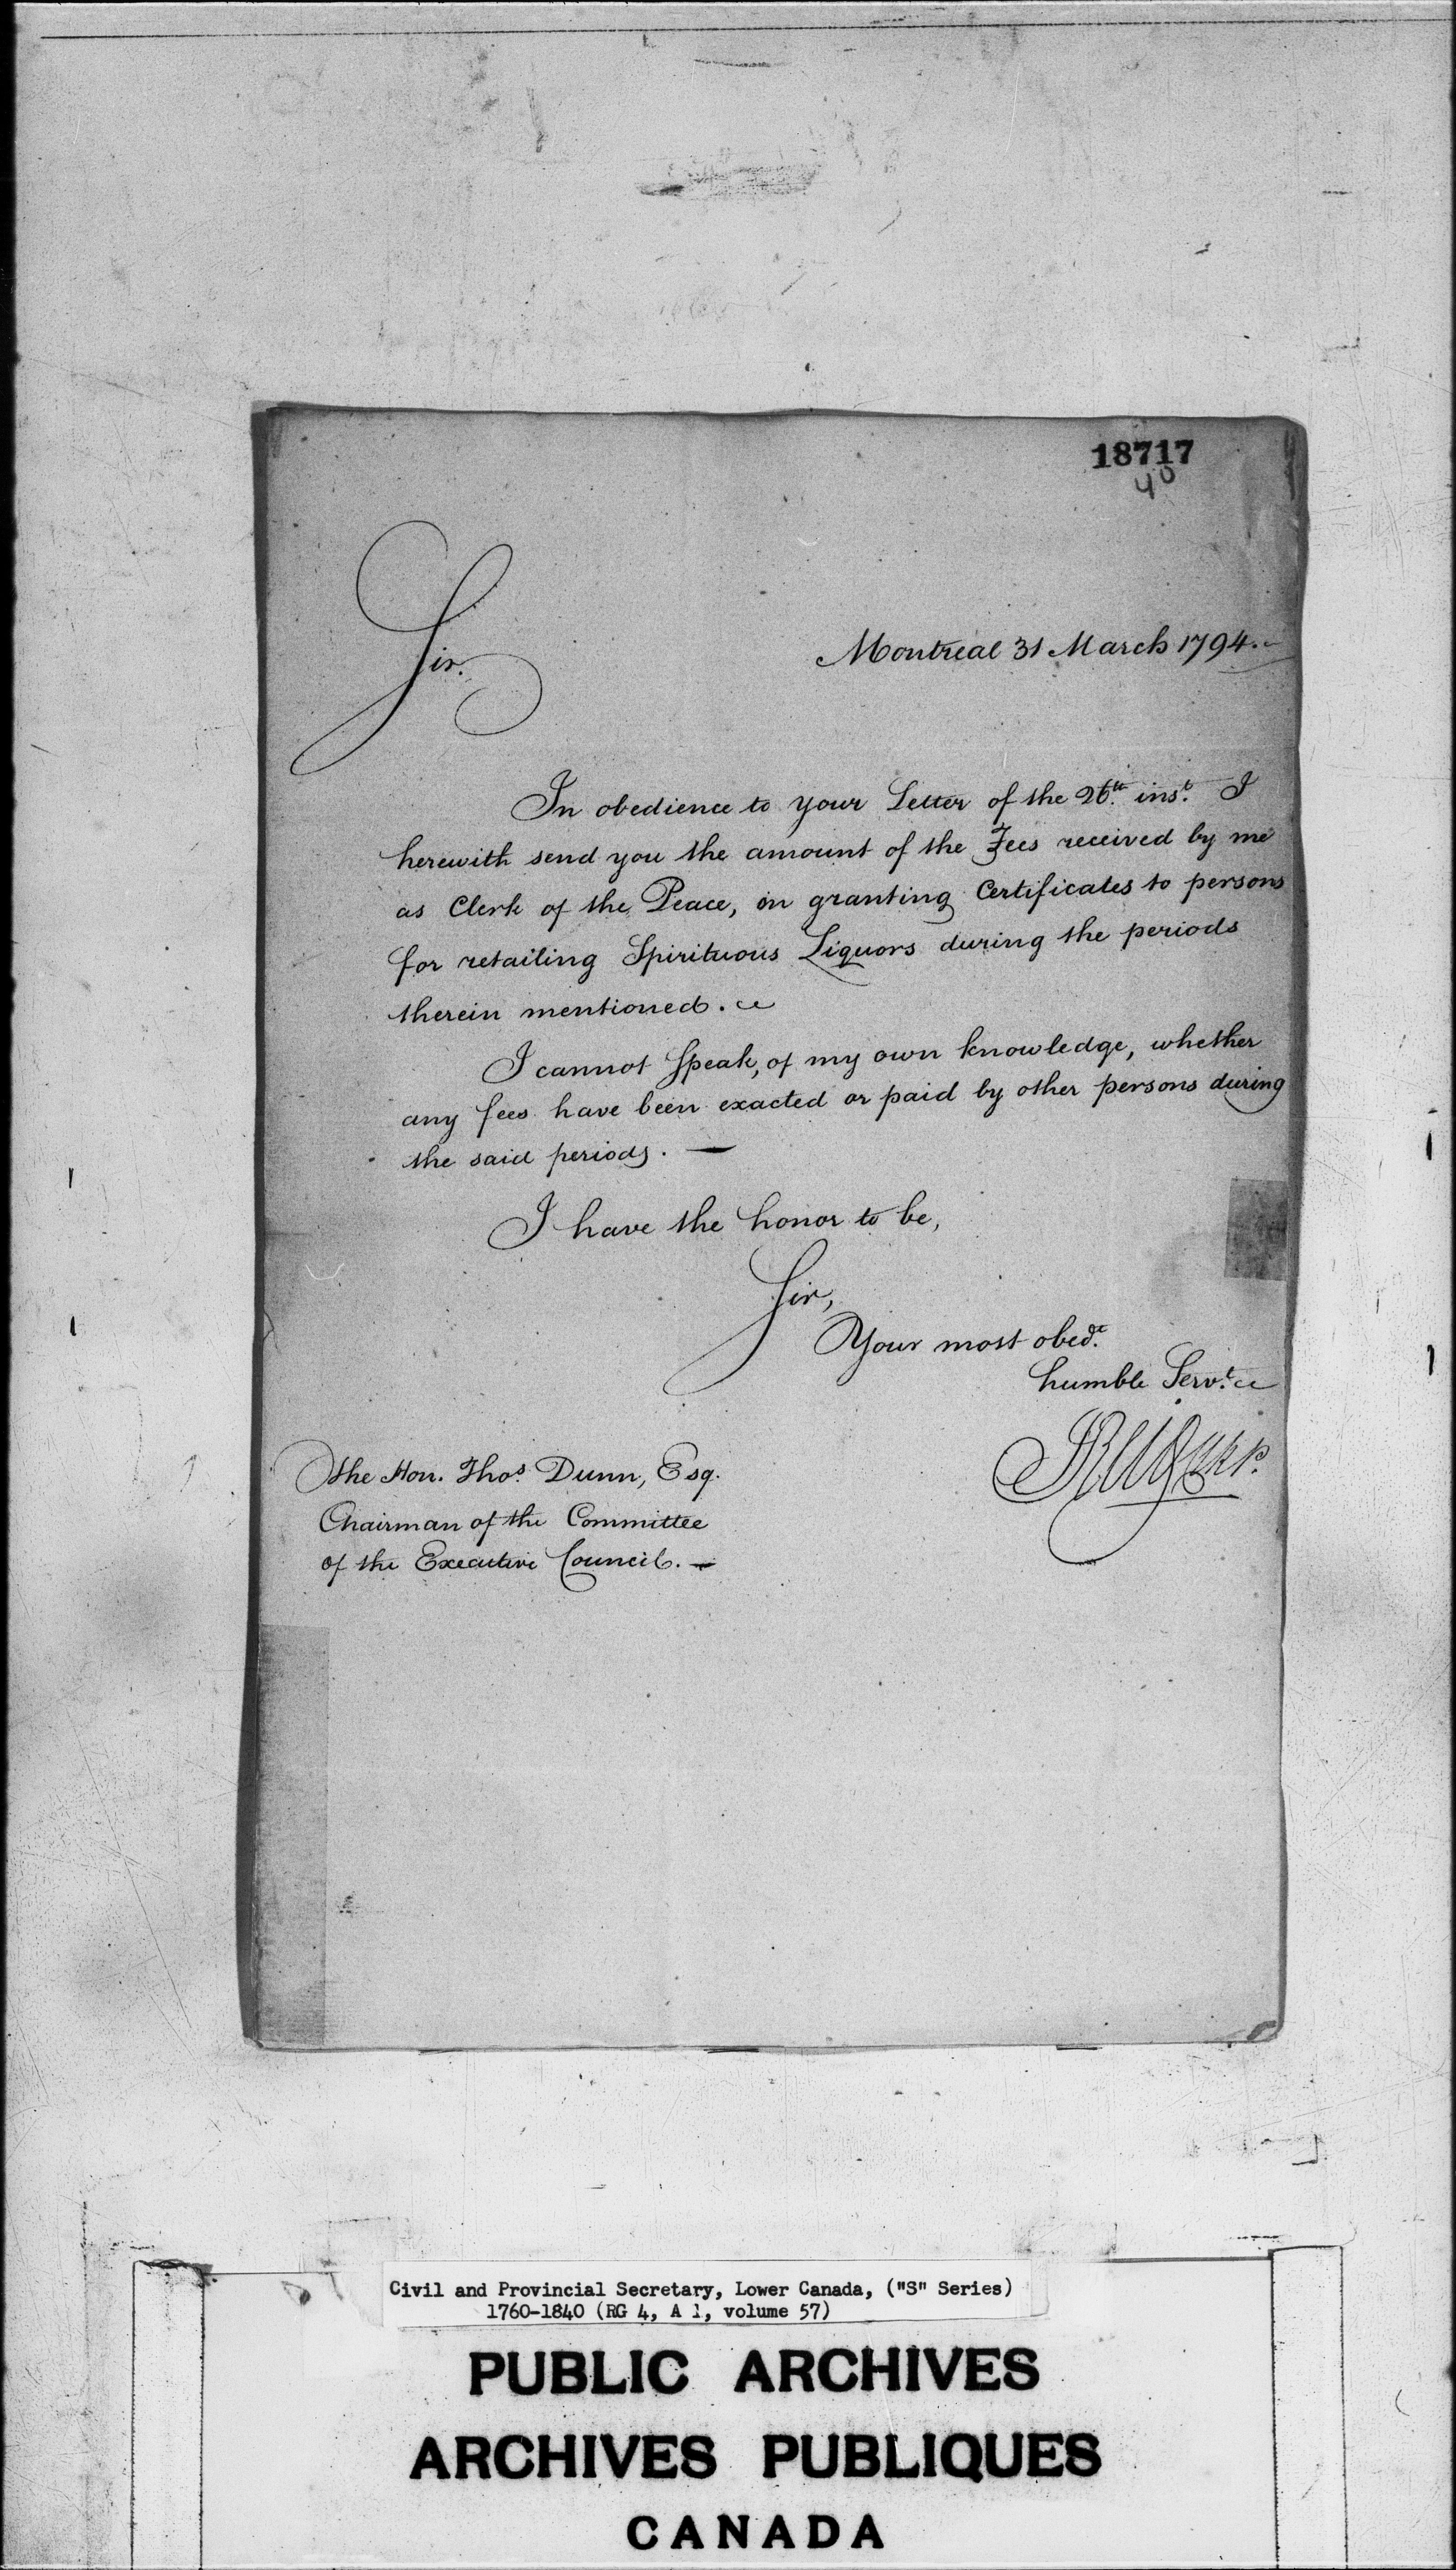 18717
40
Sir.
Montreal 31 March 1794.
In obedience to your Letter of the 26.th ins.t I
herewith send you the amount of the Fees received by me
as Clerk of the Peace, in granting Certificates to persons
for retailing Spirituous Liquors during the periods
therein mentioned.
I cannot speak, of my own knowledge, whether
any fees have been exacted or paid by other persons during
the said periods. —
I have the honor to be,
Sir,
Your most obed.t
humble Serv.t
The Hon. Tho.s Dunn, Esq.
Chairman of the Committee
of the Executive Council. —
Civil and Provincial Secretary, Lower Canada, ("S" Series)
1760-1840 (RG 4, A 1, volume 57)
PUBLIC ARCHIVES
ARCHIVES PUBLIQUES
CANADA